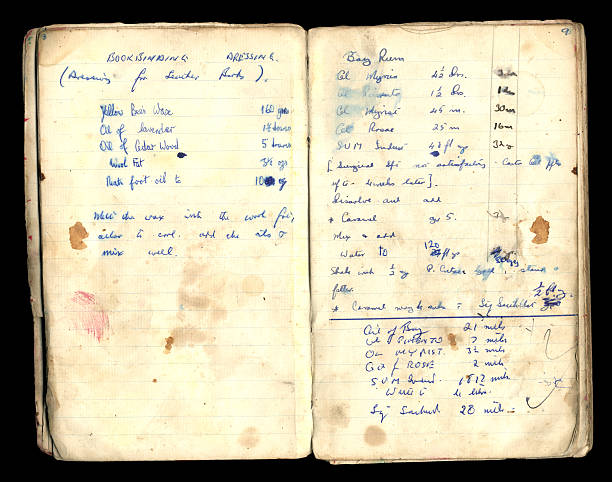 BOOKBINDING DRESSING.
(Dressing for Leather Books).
Yellow Bees Wax 160 grs
Oil of lavender 1½ drams
Oil of Cedar Wood 5 drams
Wool Fat 3½ ozs
Neats foot oil to 10 oz
Melt the wax with the wool fat,
allow to cool. add the oils &
mix well.
9.
Bay Rum
Ol Myrcia 4½ Drs.
Ol Pimento 1½ Drs.
Ol Myrist 45 m. 30m
Ol Rosae 25 m 16m
SVM Indust 48 fl ozs 32oz
[Surgical Spt not satisfactory -
of 6 weeks later].
Dissolve and add
* Caramel grs 5.
Mix & add
Water to 120 fl ozs
Shake with ½ oz stand &
filter.
* Caramel may be ½ fl oz
Oil of Bay 21 mils
Ol PIMENTO 7 mils
OL MYRIST. 3½ mils
Oil of ROSE 2 mils
SVM Indust. 1812 mils
Water to 4 litres.
28 mils